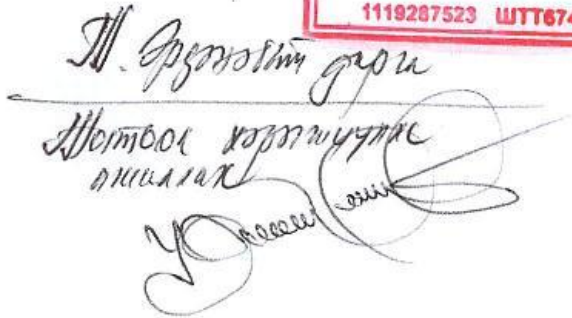 1119287523 ШТТ674
Т. Эрдэнэбат дарга
Тогтоол хэрэгжүүлж
ажиллах